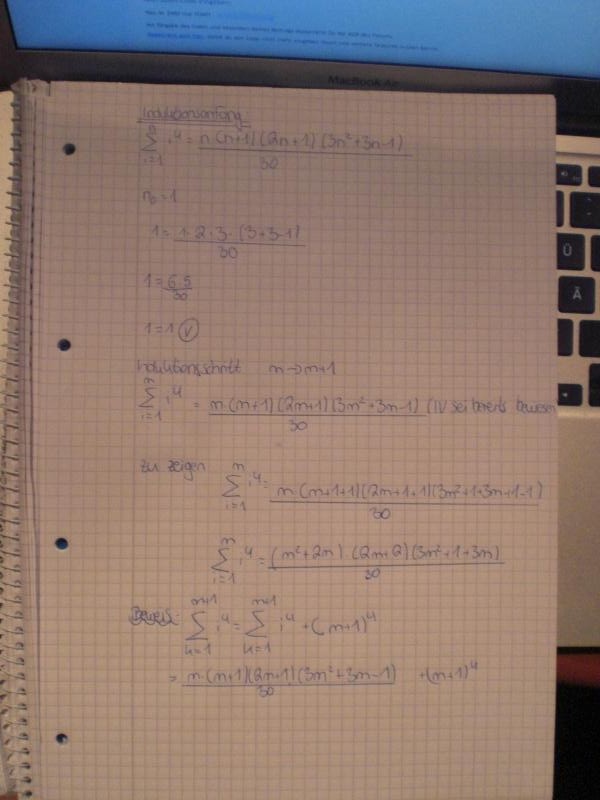 MacBook Air
Induktionsanfang
n
∑ i⁴ = n·(n+1)(2n+1)(3n²+3n-1) / 30
i=1
n₀=1
1 = 1·2·3·(3+3-1) / 30
1 = 6·5 / 30
1=1 ✓
Induktionsschritt m→m+1
m
∑ i⁴ = m·(m+1)(2m+1)(3m²+3m-1) / 30 (IV sei bereits bewiesen
i=1
zu zeigen
m
∑ i⁴ = m·(m+1+1)(2m+1+1)(3m²+1+3m+1-1) / 30
i=1
m
∑ i⁴ = (m²+2m)·(2m+2)(3m²+1+3m) / 30
i=1
Beweis: m+1 m+1
∑ i⁴ = ∑ i⁴ + (m+1)⁴
k=1 k=1
= m·(m+1)(2m+1)(3m²+3m-1) / 30 +(m+1)⁴
Ü
Ä